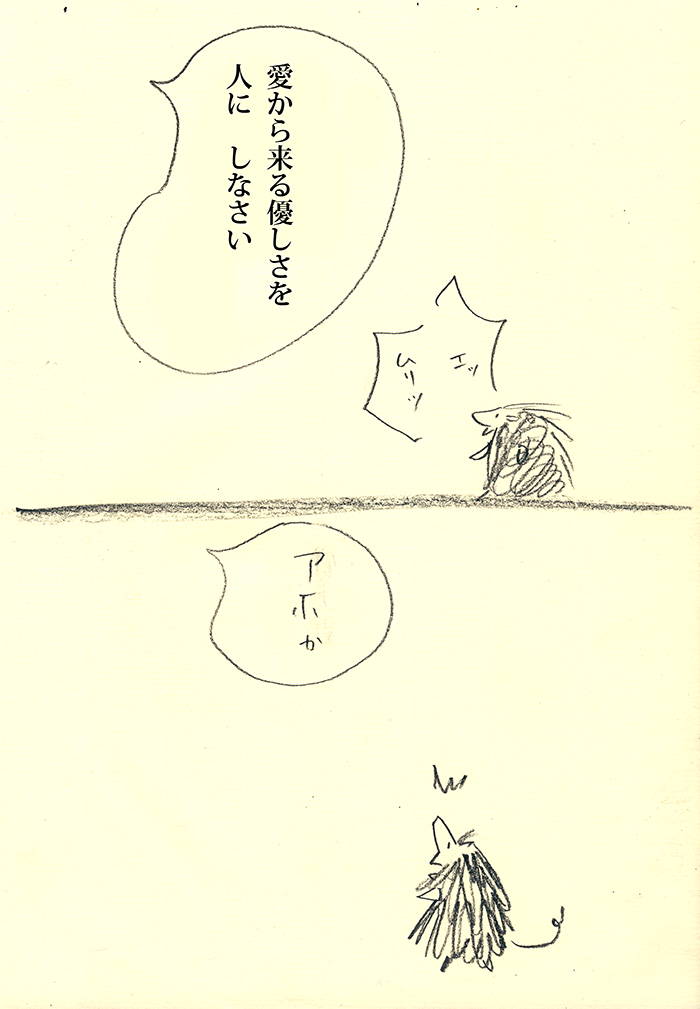 愛から来る優しさを
人に　しなさい
エッ
ムリッ
アホか